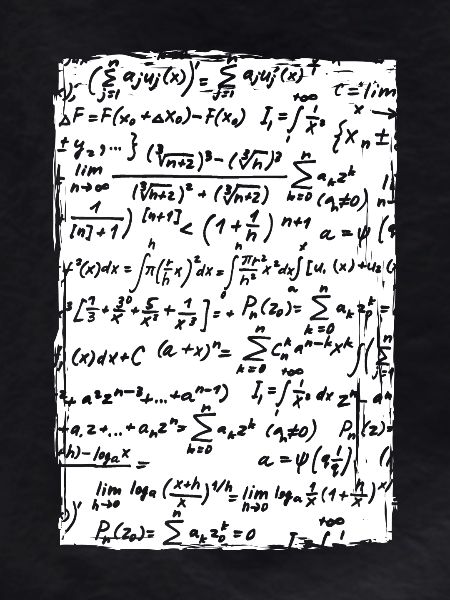 (∑_{j=1}^{n} a_j u_j(x))' = ∑_{j=1}^{n} a_j u_j(x) c = lim x→
ΔF = F(x₀+Δx₀) − F(x₀) I₁ = ∫_1^{+∞} 1/x³ {x_n ±
± y₂,...} lim_{n→∞} ((∛(n+2))³ − (∛n)³) / ((∛(n+2))² + (∛(n+2))) ∑_{k=0}^{n} a_k z^k (a_n≠0)
1/([n]+1)) ^{[n+1]} < (1+1/n)^{n+1} a = ψ(
y³(x)dx = ∫_0^h π(r/h x)² dx = ∫_0^h πr²/h² x² dx ∫_a^x [u₁(x)+u₂(
³[7/3 + 3⁰/x + 5/x² + 1/x³] = + P_n(z₀) = ∑_{k=0}^{n} a_k z_0^k =
(x)dx + C (a+x)^n = ∑_{k=0}^{n} C_n^k a^{n−k} x^k ∫(∑_{j=1}^{n}
+ a²z^{n−3} + ... + a^{n−1}) I₁ = ∫_1^{+∞} 1/x³ dx z^n − a^n
+ a₁z + ... + a_n z^n = ∑_{k=0}^{n} a_k z^k (a_n≠0) P_n(z) =
h) − log_a x = a = ψ(q 1/q)
lim_{h→0} log_a((x+h)/x)^{1/h} = lim_{h→0} log_a 1/x (1+h/x)^x
)' P_n(z₀) = ∑^{n} a_k z_0^k = 0 I = ∫^{+∞} 1